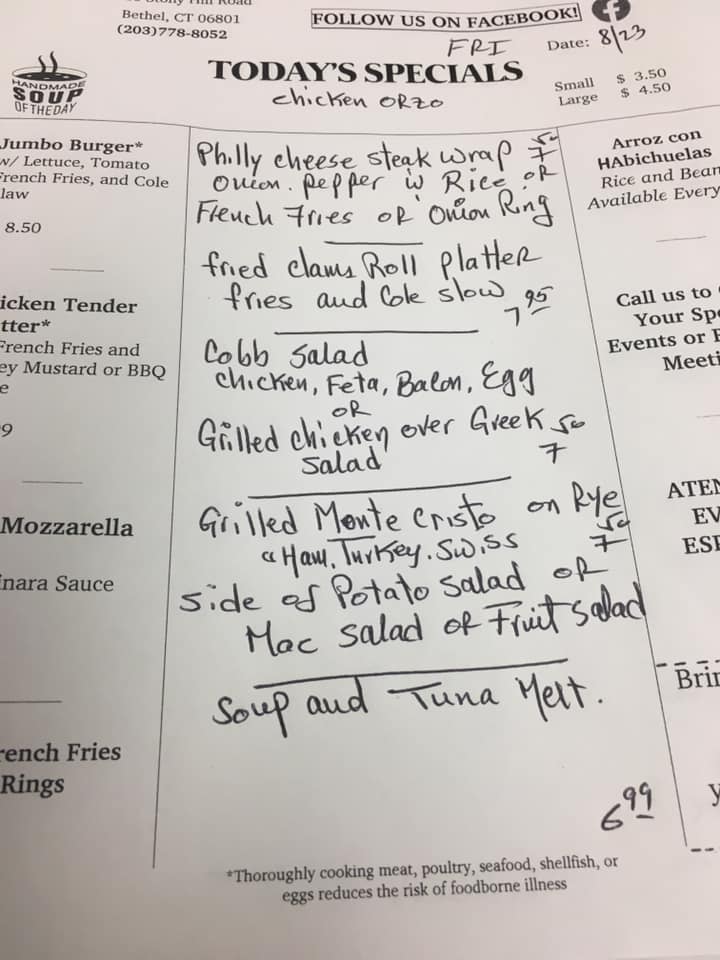 Bethel, CT 06801
(203)778-8052
FOLLOW US ON FACEBOOK!
f
FRI
Date: 8/23
HANDMADE
SOUP
OF THE DAY
TODAY'S SPECIALS
Chicken ORZO
Small $ 3.50
Large $ 4.50
Jumbo Burger*
w/ Lettuce, Tomato
French Fries, and Cole
law
8.50
icken Tender
tter*
French Fries and
ey Mustard or BBQ
e
9
Mozzarella
nara Sauce
rench Fries
Rings
Philly cheese steak wrap 7 50
onion. pepper w Rice. OR
French Fries OR Onion Ring
fried clams Roll Platter
fries and Cole slow
7 95
Cobb Salad
Chicken, Feta, Bacon, Egg
OR
Grilled chicken over Greek 50
Salad 7
Grilled Monte Cristo on Rye
"Ham, Turkey. Swiss 7 50
Side of Potato Salad OR
Mac Salad OR Fruit Salad
Soup and Tuna Melt.
6 99
*Thoroughly cooking meat, poultry, seafood, shellfish, or
eggs reduces the risk of foodborne illness
Arroz con
HAbichuelas
Rice and Bean
Available Every
Call us to
Your Spe
Events or
Meeti
ATEN
EV
ESP
Brin
y